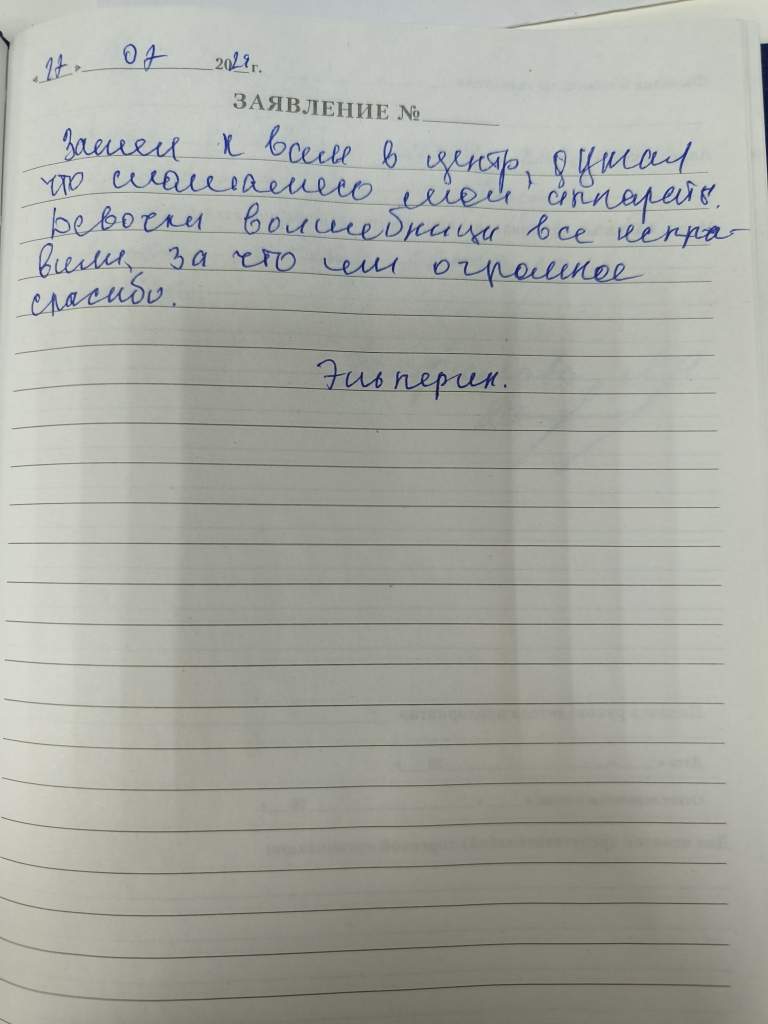 «17» 07 2024 г.
ЗАЯВЛЕНИЕ №
Зашел к всем в центр, думал
что сломались мои аппараты.
Девочки волшебници все испра-
вили, за что им огромное
спасибо.
Эльперин.